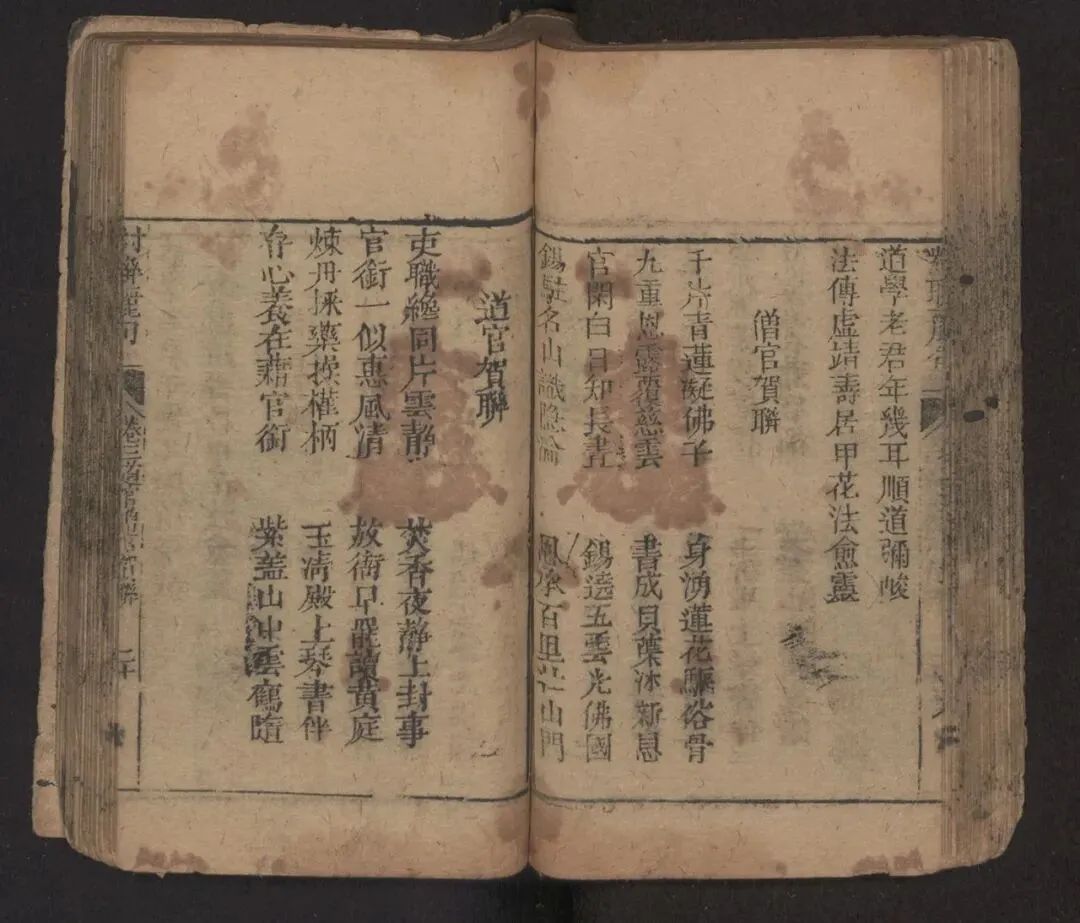 道學老君年幾耳順道彌峻
法傳虛靖壽居甲花法愈靈
僧官賀聯
千片青蓮凝佛子 身湧蓮花驅俗骨
九重恩露覆慈雲 書成貝葉沐新恩
官閑白日知長晝 錫遶五雲光佛國
錫駐名山識隱 百里 山門
道官賀聯
吏職纔同片雲靜 焚香夜靜上封事
官銜一似惠風清 放衙早罷讀黃庭
煉丹採藥操權柄 玉清殿上琴書伴
存心養在藉官銜 紫蓋山中雲鶴隨
卷三 官賀聯 二十